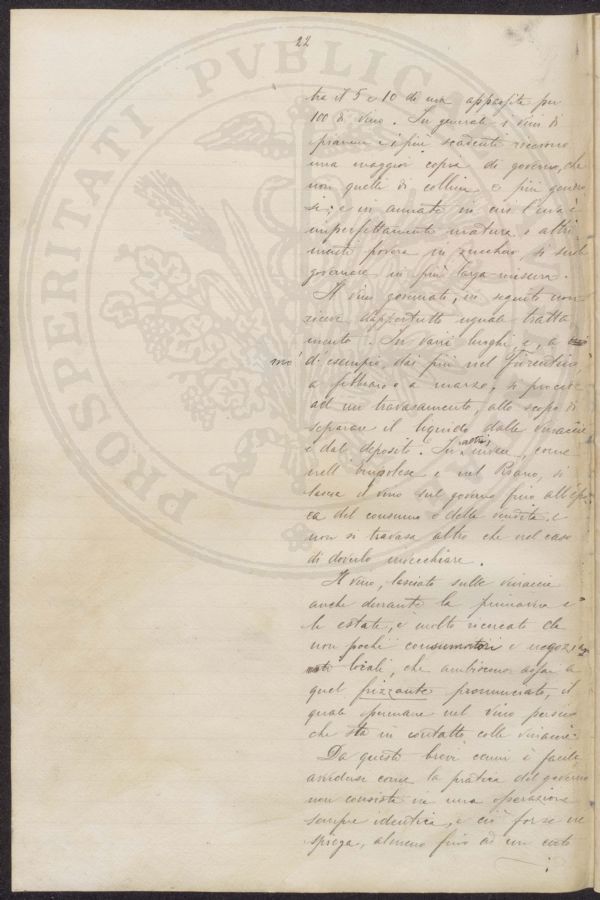 22
PROSPERITATI PVBLICAE
tra il 5 e 10 di uva appassita per
100 di vino. In generale i vini di
pianura e i più scadenti ricevono
una maggior copia di governo, che
non quelli di collina e più genero
si; e in annate in cui l'uva è
imperfettamente matura o altri
menti povera in zucchero, si suol
governare in più larga misura.
Il vino governato, in seguito non
riceve dappertutto uguale tratta
mento. In varii luoghi e, a
mo' d'esempio, dai più nel Fiorentino
a febbraio o a marzo, si procede
ad un travasamento, allo scopo di
separare il liquido dalle vinaccie
e dal deposito. In altri invece, come
nell' e nel Pisano, si
lascia il vino sul governo fino all'epo
ca del consumo o della vendita, e
non si travasa altro che nel caso
di doverlo invecchiare.
Il vino, lasciato sulle vinaccie
anche durante la primavera e
la estate, è molto ricercato da
non pochi consumatori e negozian
ti locali, che ambiscono assai a
quel frizzante pronunciato, il
quale permane nel vino perciò
che sta in contatto colle vinaccie.
Da questi brevi cenni è facile
avvedersi come la pratica del governo
non consista in una operazione
sempre identica, e ciò forse ne
spiega, almeno fino ad un certo